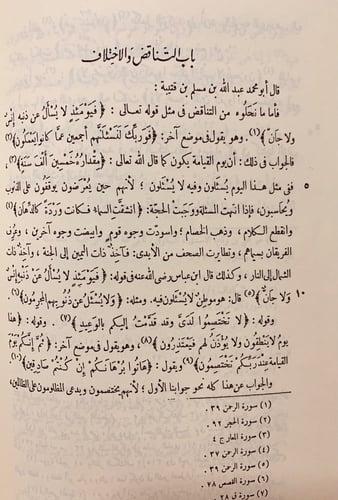 باب التناقض والاختلاف
قال أبو محمد عبد الله بن مسلم بن قتيبة :
فأما ما نحلوه من التناقض فى مثل قوله تعالى : ﴿ فَيَوْمَئِذٍ لا يُسْأَلُ عن ذنبه إِنْسٌ
ولا جَانّ ﴾(١). وهو يقول فى موضع آخر: ﴿ فَوَرَبِّكَ لَنَسْئَلَنَّهُمْ أجمعين عمَّا كانوا يَعْمَلُونَ ﴾(٢)،
فالجواب فى ذلك : أن يوم القيامة يكون كما قال الله تعالى : ﴿ مِقْدَارُهُ خَمْسِينَ أَلْفَ سَنَةٍ ﴾(٣)،
٥ ففى مثل هـذا اليوم يُسئلون وفيه لا يُسئلون ؛ لأنهم حين يُعْرَضون يوقَفُون على الذنوب
ويُحاسبون، فإذا انتهت المسئلة ووجبت الحجّة: ﴿ انشقَّت السماء فكانت وَرْدَةً كالدِّهَانِ ﴾(٤)
وانقطع الكلام ، وذهب الخصام ؛ واسودّت وجوه قوم وابيضت وجوه آخرين ، وعُرِف
الفريقان بسيماهم ، وتطايرت الصحف من الأيدى: فآخِذٌ ذات اليمين إلى الجنة ، وآخِذٌ ذات
الشمال إلى النار ، وكذلك قال ابن عباس رضى الله عنه فى قوله: ﴿ فَيَوْمَئِذٍ لا يُسْأَلُ عَنْ ذَنْبِهِ إِنْسٌ
١٠ وَلا جَانٌّ ﴾(٥) قال: هو موطنٌ لا يُسْئَلُون فيه. ومثله: ﴿ وَلَا يُسْئَلُ عن ذُنُوبِهِمُ المجرِمُونَ ﴾(٦)
وقوله : ﴿ لا تَخْتَصِمُوا لَدَىَّ وقد قَدَّمْتُ إليكم بالوَعِيدِ ﴾(٧) . وقوله : ﴿ هذا
يومُ لا يَنْطِقُونَ ولا يُؤْذَنُ لهم فَيَعْتَذِرُونَ ﴾(٨)، وهو يقول فى موضع آخر: ﴿ ثُمَّ إِنَّكُمْ يَوْمَ
القيامة عِنْدَ رَبِّكُمْ تَخْتَصِمُونَ ﴾(٩) ويقول : ﴿ هَاتُوا بُرْهَانَكُمْ إِنْ كُنْتُمْ صَادِقِينَ ﴾(١٠)
والجواب عن هذا كله نحو جوابنا الأول ؛ لأنهم يختصمون ويدعى المظلومون على الظالمين،
(١) سورة الرحمن ٣٩ .
(٢) سورة الحجر ٩٢ .
(٣) سورة المعارج ٤
(٤) سورة الرحمن ٣٧ .
(٥) سورة الرحمن ٣٩ .
(٦) سورة القصص ٧٨ .
(٧) سورة ق ٢٨ .